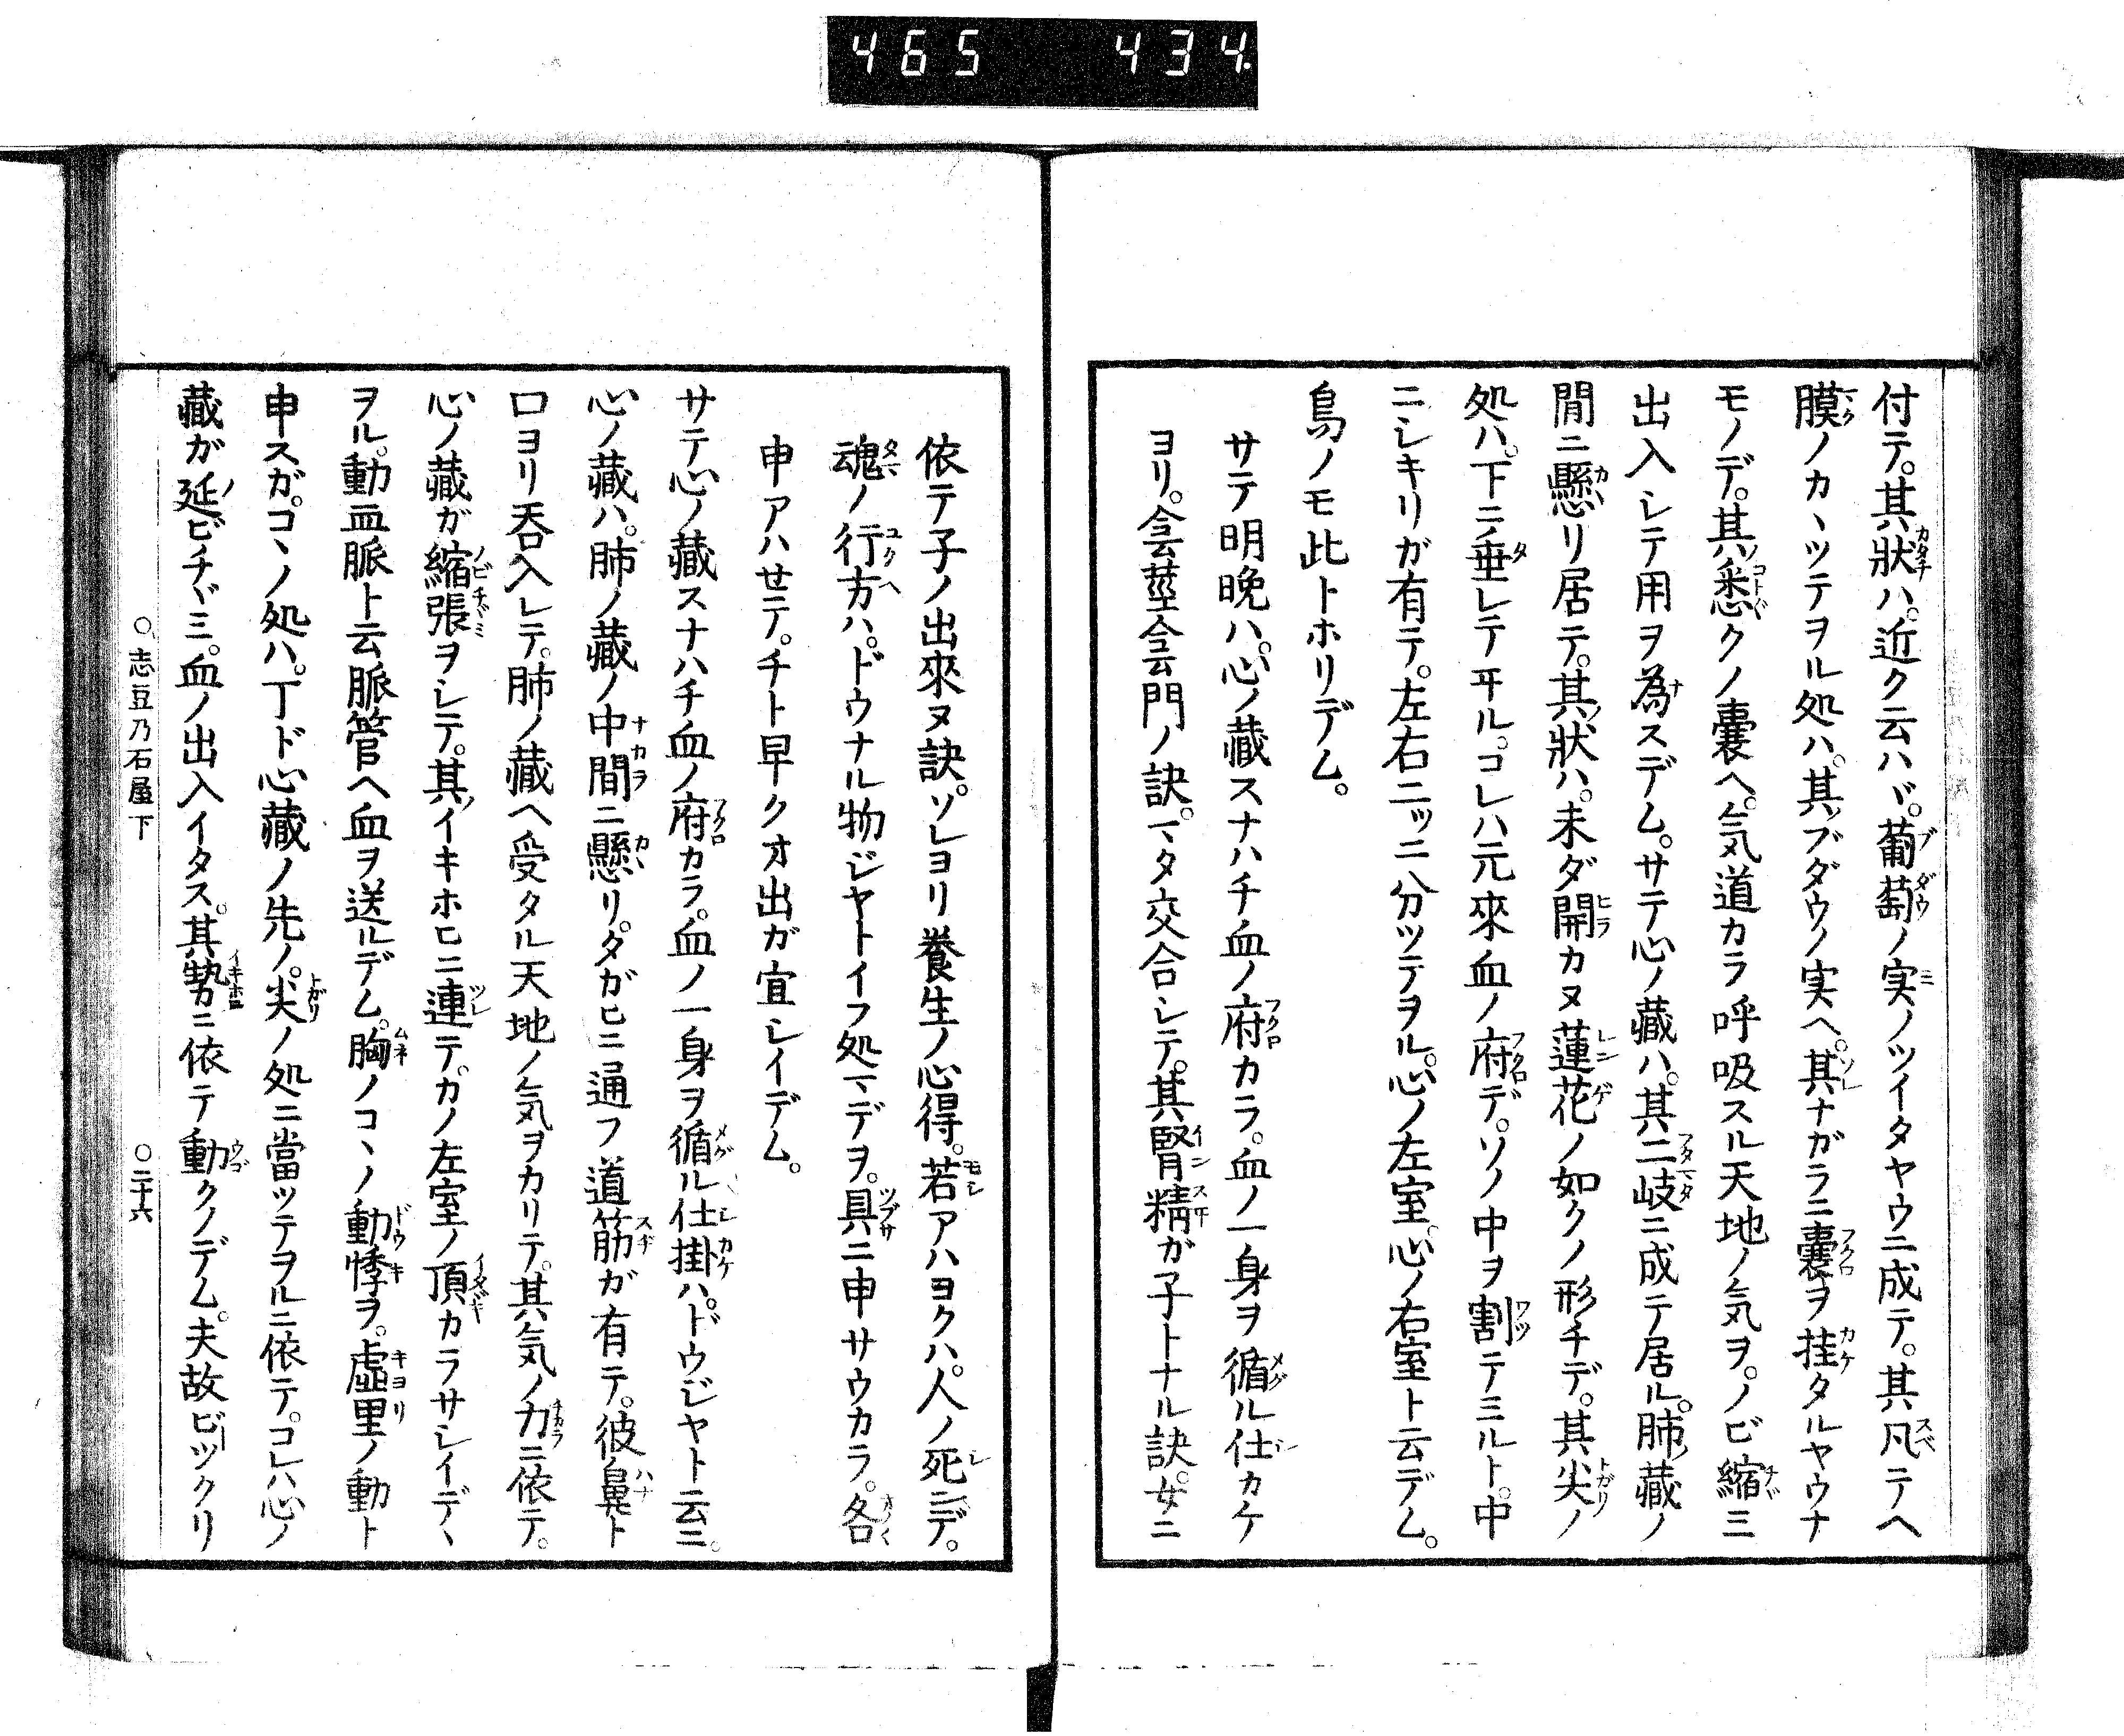 465 434
付テ。其狀ハ。近ク云ハヾ。葡萄ノ実ノツイタヤウニ成テ。其凡テヘ
膜ノカヽツテヲル処ハ。其ブダウノ実ヘ。其ナガラニ囊ヲ挂タルヤウナ
モノデ。其悉クノ囊ヘ。気道カラ呼吸スル天地ノ気ヲ。ノビ縮ミ
出入レテ用ヲ為スデム。サテ心ノ藏ハ。其二岐ニ成テ居ル。肺藏ノ
間ニ懸リ居テ。其狀ハ。未ダ開カヌ蓮花ノ如クノ形チデ。其尖ノ
処ハ。下ニ垂レテヰル。コレハ元來血ノ府デ。ソノ中ヲ割テミルト。中
ニシキリガ有テ。左右ニツニ分ツテヲル。心ノ左室。心ノ右室ト云デム。
鳥ノモ此トホリデム。
サテ明晩ハ。心ノ藏スナハチ血ノ府カラ。血ノ一身ヲ循ル仕カケ
ヨリ。陰莖陰門ノ訣。マタ交合シテ。其腎精ガ子トナル訣。女ニ
依テ子ノ出來ヌ訣。ソレヨリ養生ノ心得。若アハヨクハ。人ノ死ンデ。
魂ノ行方ハ。ドウナル物ジヤトイフ処マデヲ。具ニ申サウカラ。各
申アハせテ。チト早クオ出ガ宜シイデム。
サテ心ノ藏スナハチ血ノ府カラ。血ノ一身ヲ循ル仕掛ハ。ドウジヤト云ニ。
心ノ藏ハ。肺ノ藏ノ中間ニ懸リ。タガヒニ通フ道筋ガ有テ。彼鼻ト
口ヨリ呑入レテ。肺ノ藏ヘ受タル天地ノ気ヲカリテ。其気ノ力ニ依テ。
心ノ藏ガ縮張ヲシテ。其イキホヒニ連テ。カノ左室ノ頂カラサシイデヽ
ヲル。動血脈ト云脈管ヘ血ヲ送ルデム。胸ノコヽノ動悸ヲ。虛里ノ動ト
申スガ。コヽノ処ハ。丁ド心藏ノ先ノ。尖ノ処ニ當ツテヲルニ依テ。コレハ心ノ
藏ガ延ビチヾミ。血ノ出入イタス。其勢ニ依テ動クノデム。夫故ビツクリ
○志豆乃石屋下 ○二十六